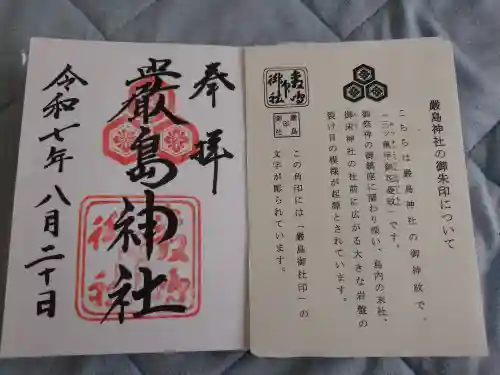 厳島神社の御朱印について
こちらは厳島神社の御神紋で、
「三ツ亀甲剣花菱紋」です。
御祭神の御鎮座に関わり深い、島内の末社、
御床神社の社前に広がる大きな岩盤の
裂け目の模様が起源とされています。
この角印には「厳島御社印」の
文字が彫られています。
奉拝
嚴島神社
令和七年八月二十日